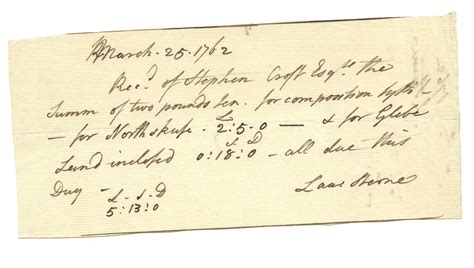 March. 25. 1762
Rec.d of Stephen Croft Esqr. the
Summ of two pounds ten. for composition tythe
— for North skufe. 2:5:0 — & for Glebe
Land inclosed 0:18:0 — all due this
Day
£ - S - D
5:13:0
Laur Sterne